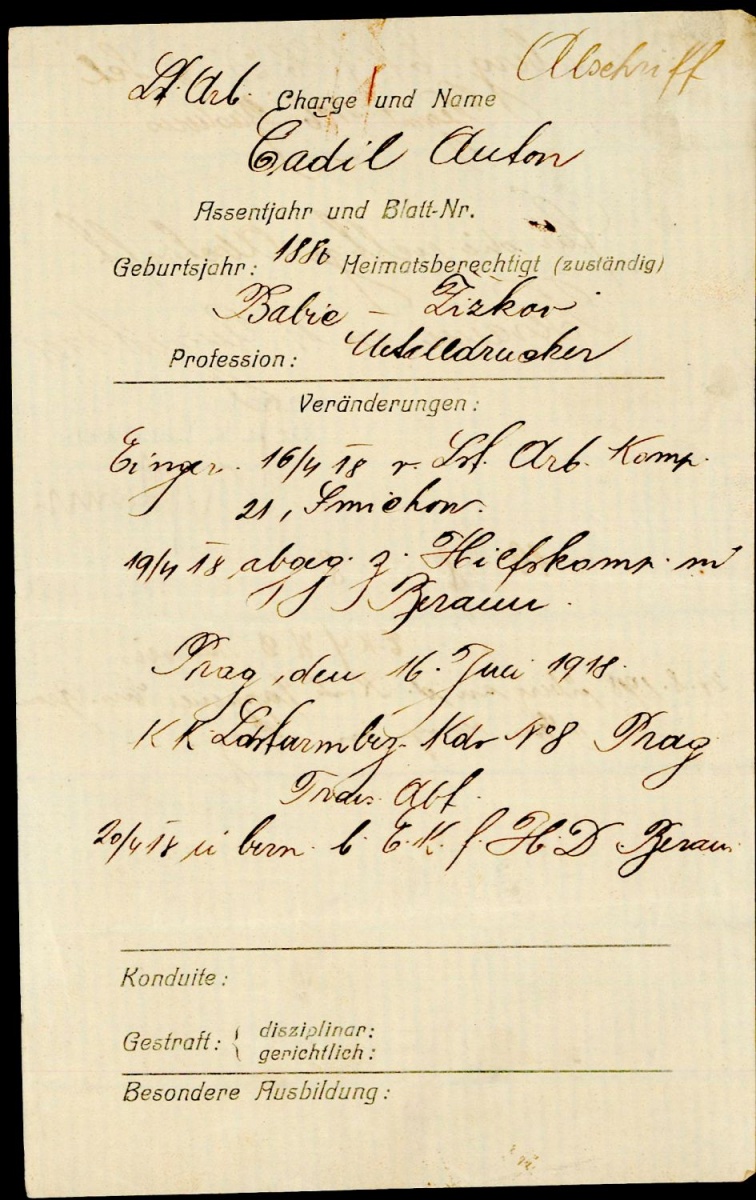 Abschrift
Lst. Arb. Charge und Name
Čadil Anton
Assentjahr und Blatt-Nr.
Geburtsjahr: 1886 Heimatsberechtigt (zuständig)
Babic - Žižkov
Profession: Metalldrucker
Veränderungen:
Einger. 16/4 18 v. Lst. Arb. Komp.
21, Smichow.
19/4 18 abgeg. z. Hilfskomp. in
Beraun.
Prag, den 16. Juli 1918.
K K Ldsturmbez. Kdo No 8 Prag
Abt.
20/4 18 b. E. K. f. H D Beraun
Konduite:
Gestraft: { disziplinar:
gerichtlich:
Besondere Ausbildung: